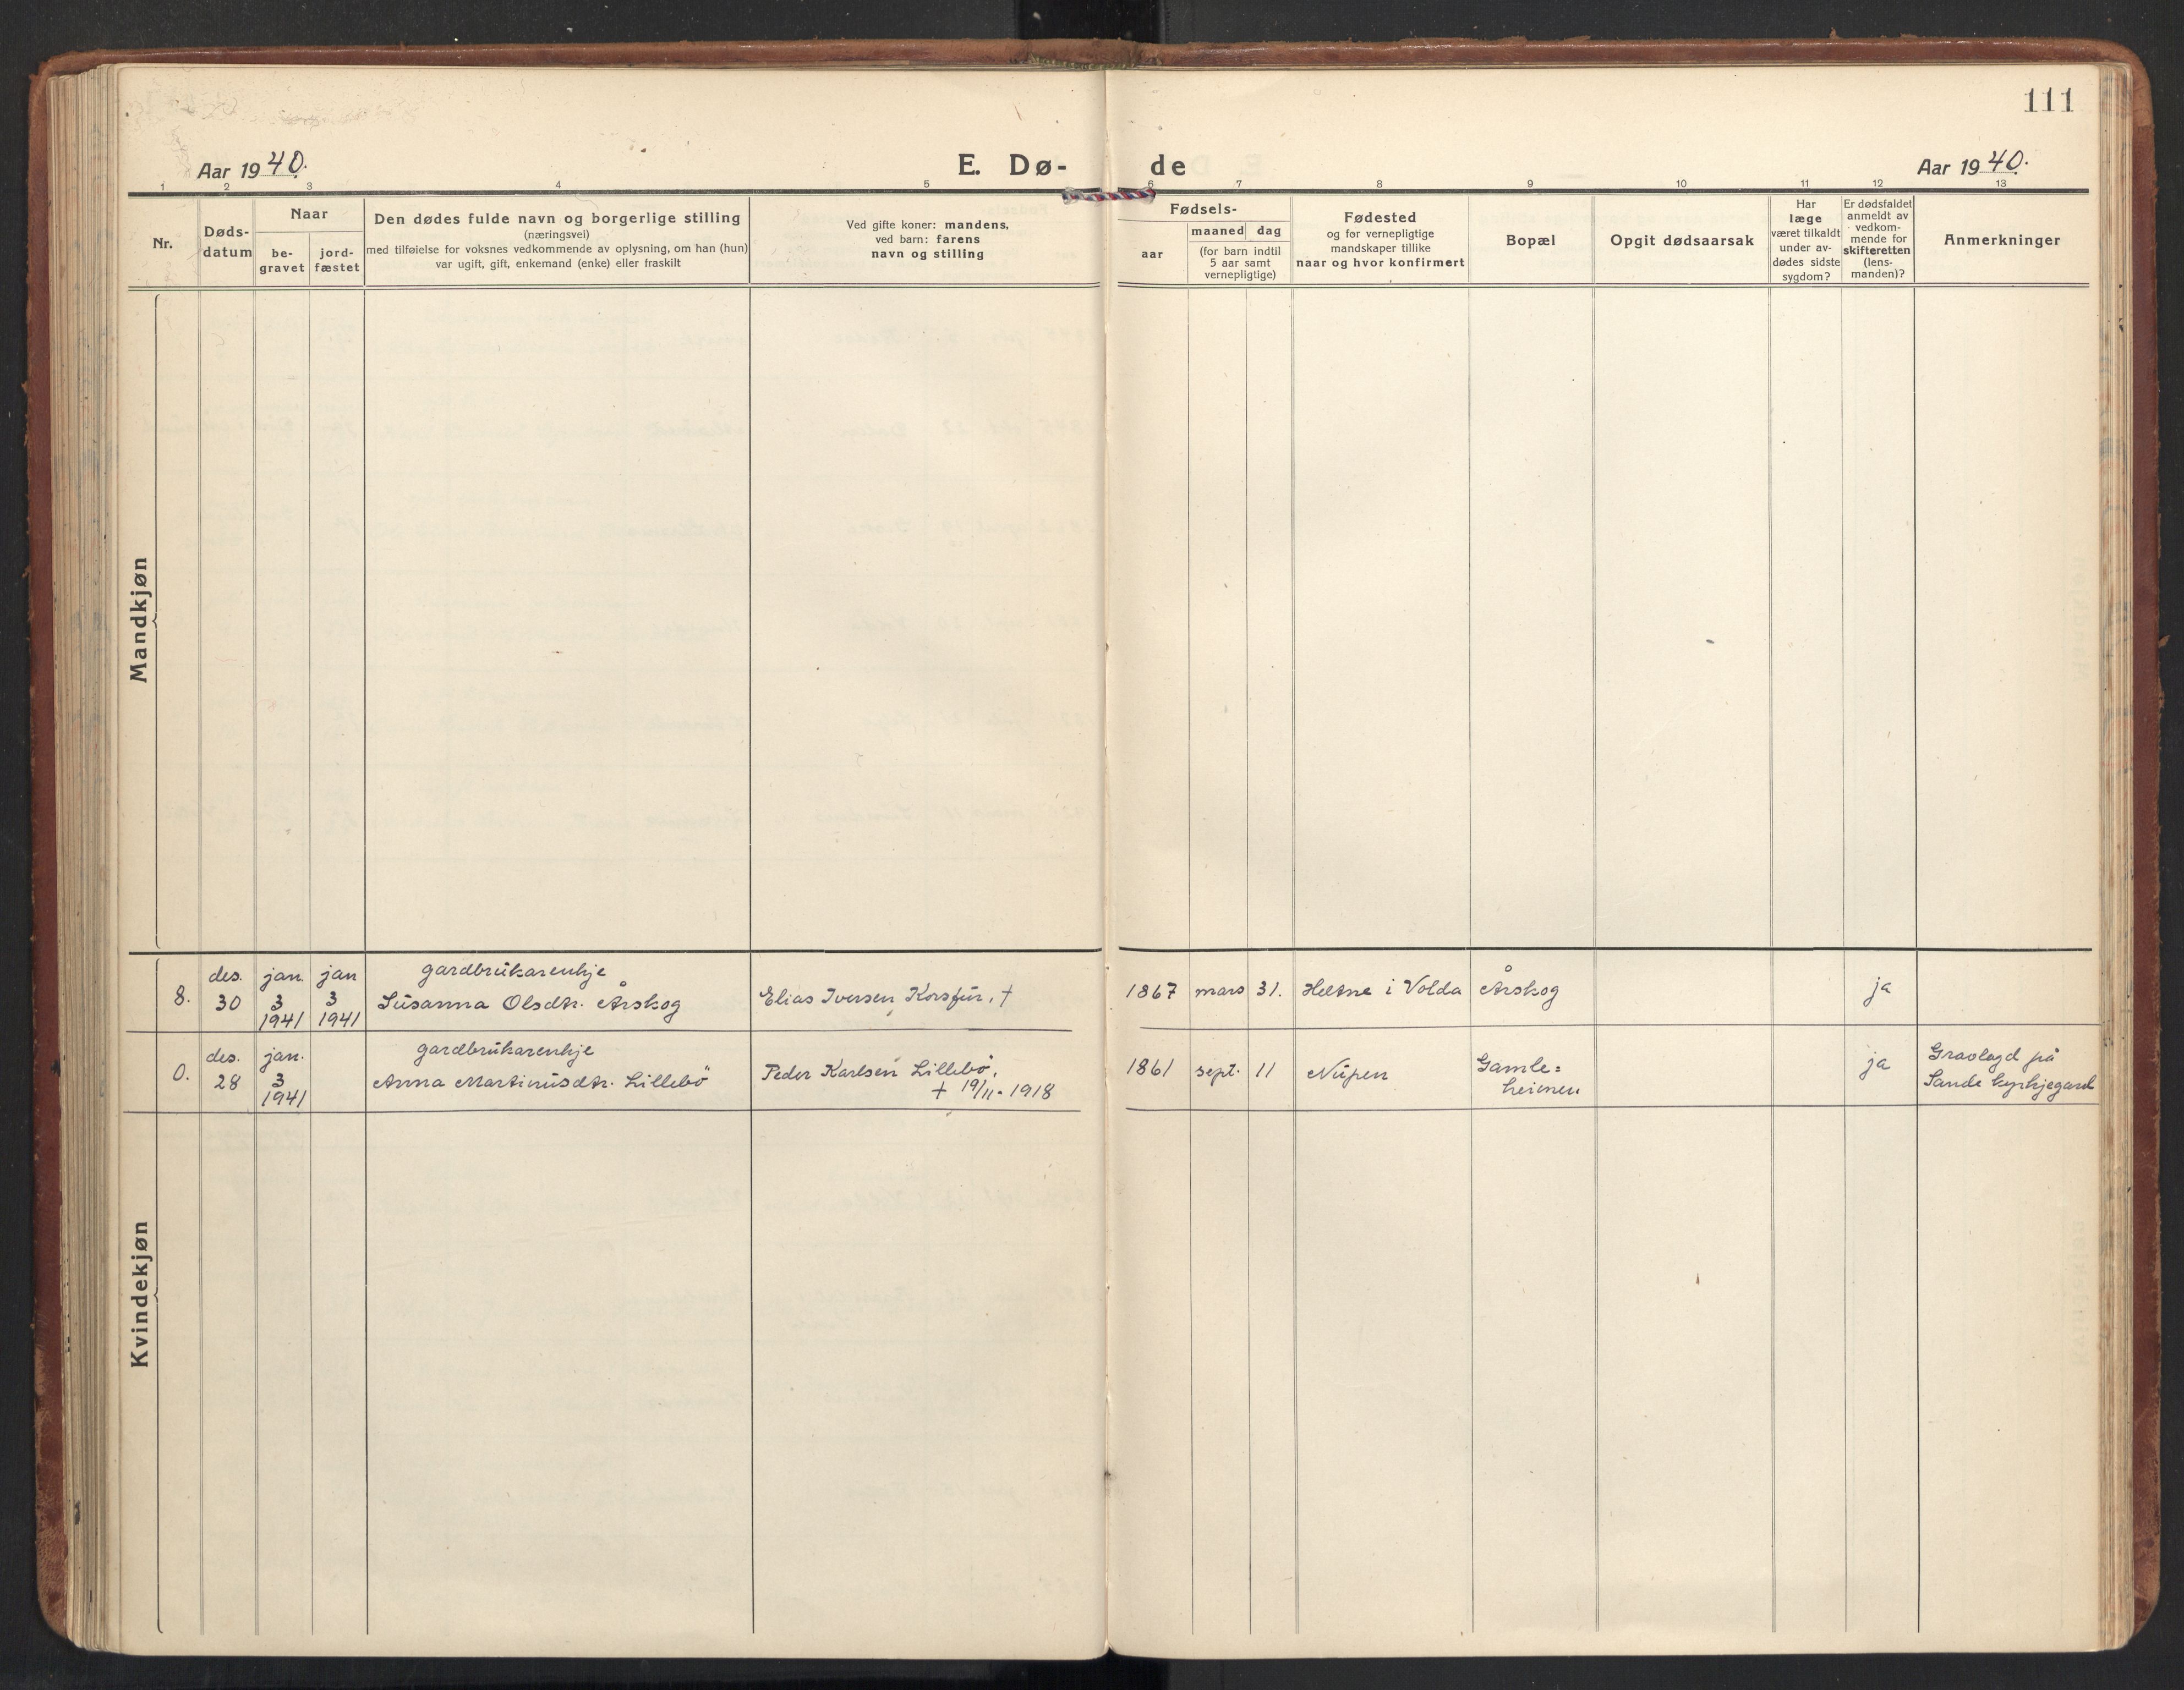 111
Aar 1940.
E. Dø-
de
Aar 1940.
1 2 3 4 5 6 7 8 9 10 11 12 13
Nr.
Døds-
datum
Naar
be-
gravet
jord-
fæstet
Den dødes fulde navn og borgerlige stilling
(næringsvei)
med tilføielse for voksnes vedkommende av oplysning, om han (hun)
var ugift, gift, enkemand (enke) eller fraskilt
Ved gifte koner: mandens,
ved barn: farens
navn og stilling
Fødsels-
aar
maaned dag
(for barn indtil
5 aar samt
vernepligtige)
Fødested
og for vernepligtige
mandskaper tillike
naar og hvor konfirmert
Bopæl
Opgit dødsaarsak
Har
læge
været tilkaldt
under av-
dødes sidste
sygdom?
Er dødsfaldet
anmeldt av
vedkom-
mende for
skifteretten
(lens-
manden)?
Anmerkninger
Mandkjøn
8.
des.
30
jan.
3
1941
jan
3
1941
gardbrukarenkje
Susanna Olsdtr. Årskog
Elias Iversen Korsfur, †
1867 mars 31.
Heltne i Volda
Årskog
ja
0.
des.
28
jan.
3
1941
gardbrukarenkje
Anna Martinusdtr. Lillebö
Peder Karlsen Lillebö,
† 19/11-1918
1861 sept. 11
Nupen
Gamle=
heimen.
ja
Gravlagd på
Sande kyrkjegard
Kvindekjøn